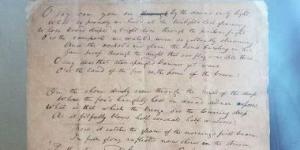 O say can you see by the dawn's early light
What so proudly we hail'd at the twilight's last gleaming,
Whose broad stripes & bright stars through the perilous fight
O'er the ramparts we watch'd, were so gallantly streaming?
And the rocket's red glare, the bomb bursting in air,
Gave proof through the night that our flag was still there,
O say does that star spangled banner yet wave
O'er the land of the free & the home of the brave?
On the shore dimly seen through the mists of the deep,
Where the foe's haughty host in dread silence reposes,
What is that which the breeze, o'er the towering steep,
As it fitfully blows, half conceals, half discloses?
Now it catches the gleam of the morning's first beam,
In full glory reflected now shines in the stream,